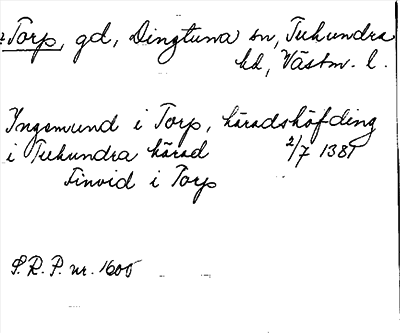 Torp, gd, Dingtuna sn, Tuhundra
hd, Västm. l.
Ingemund i Torp, häradshöfding
i Tuhundra härad 2/7 1381
Finvid i Torp
S.R.P. nr. 1605